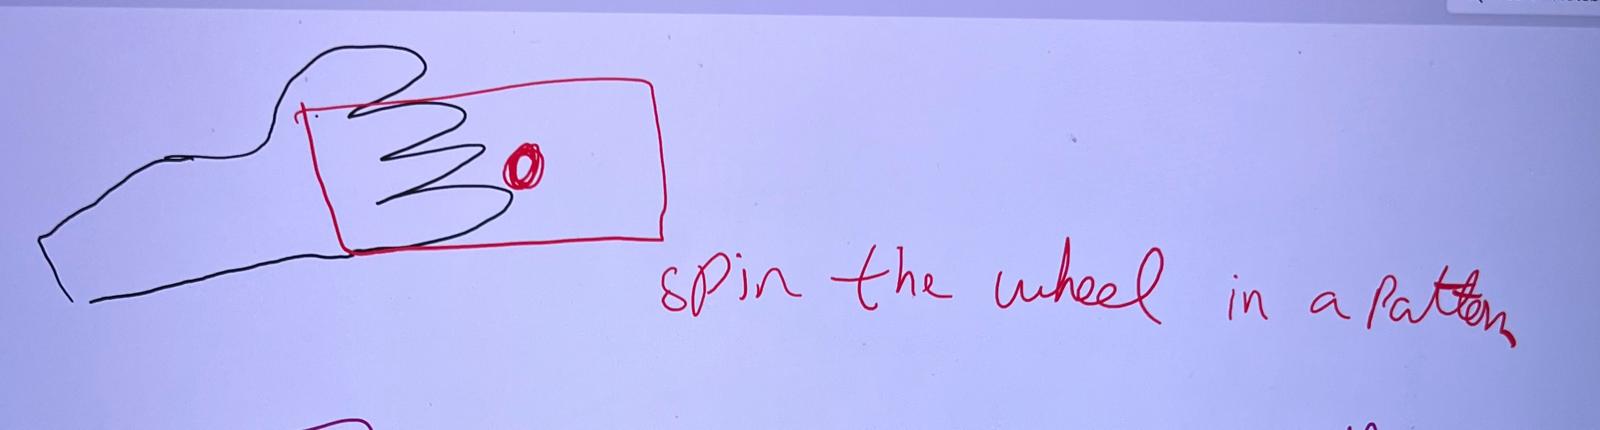 spin the wheel in a pattern